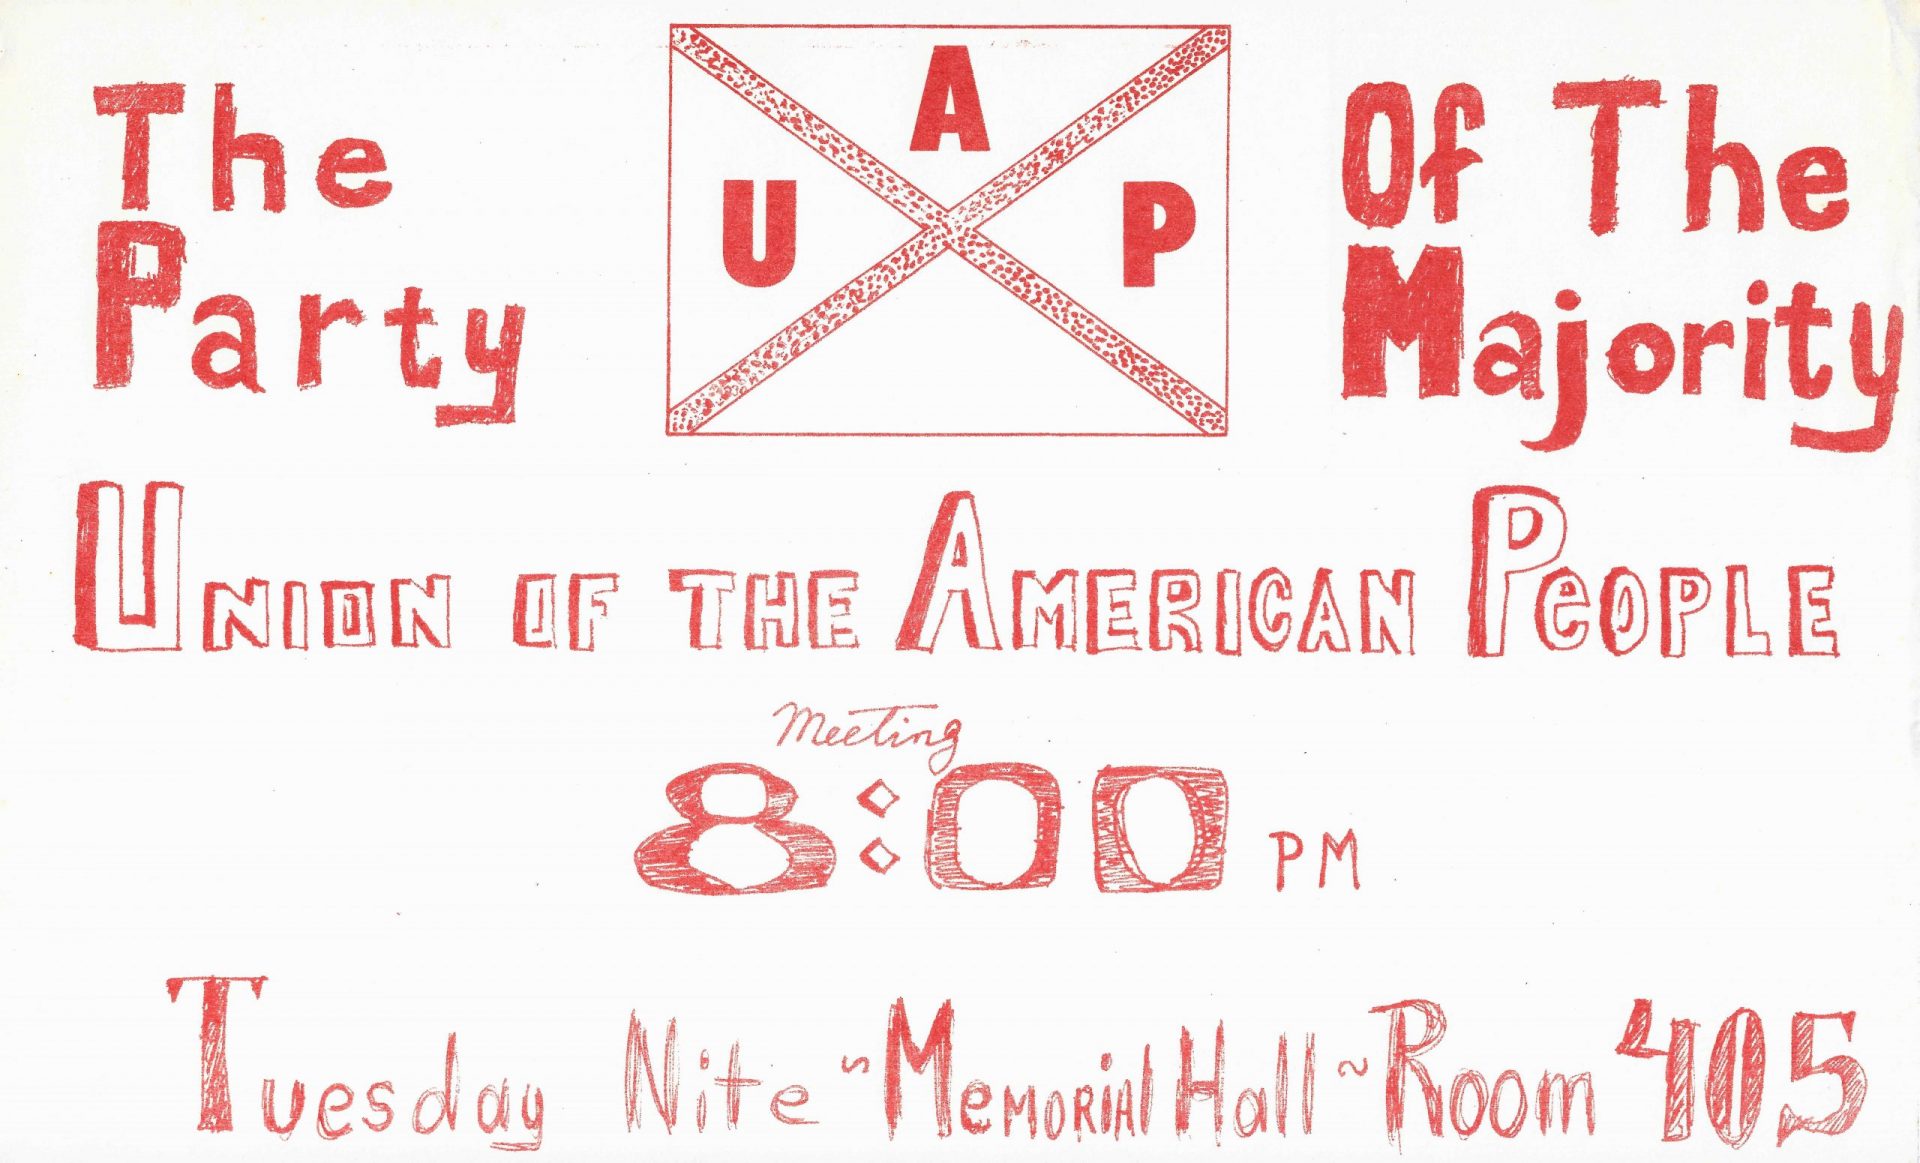 The
Party
U A P
Of The
Majority
UNION OF THE AMERICAN PeOPLE
Meeting
8:00 PM
Tuesday Nite ~ MeMORIAl Hall ~ Room 405